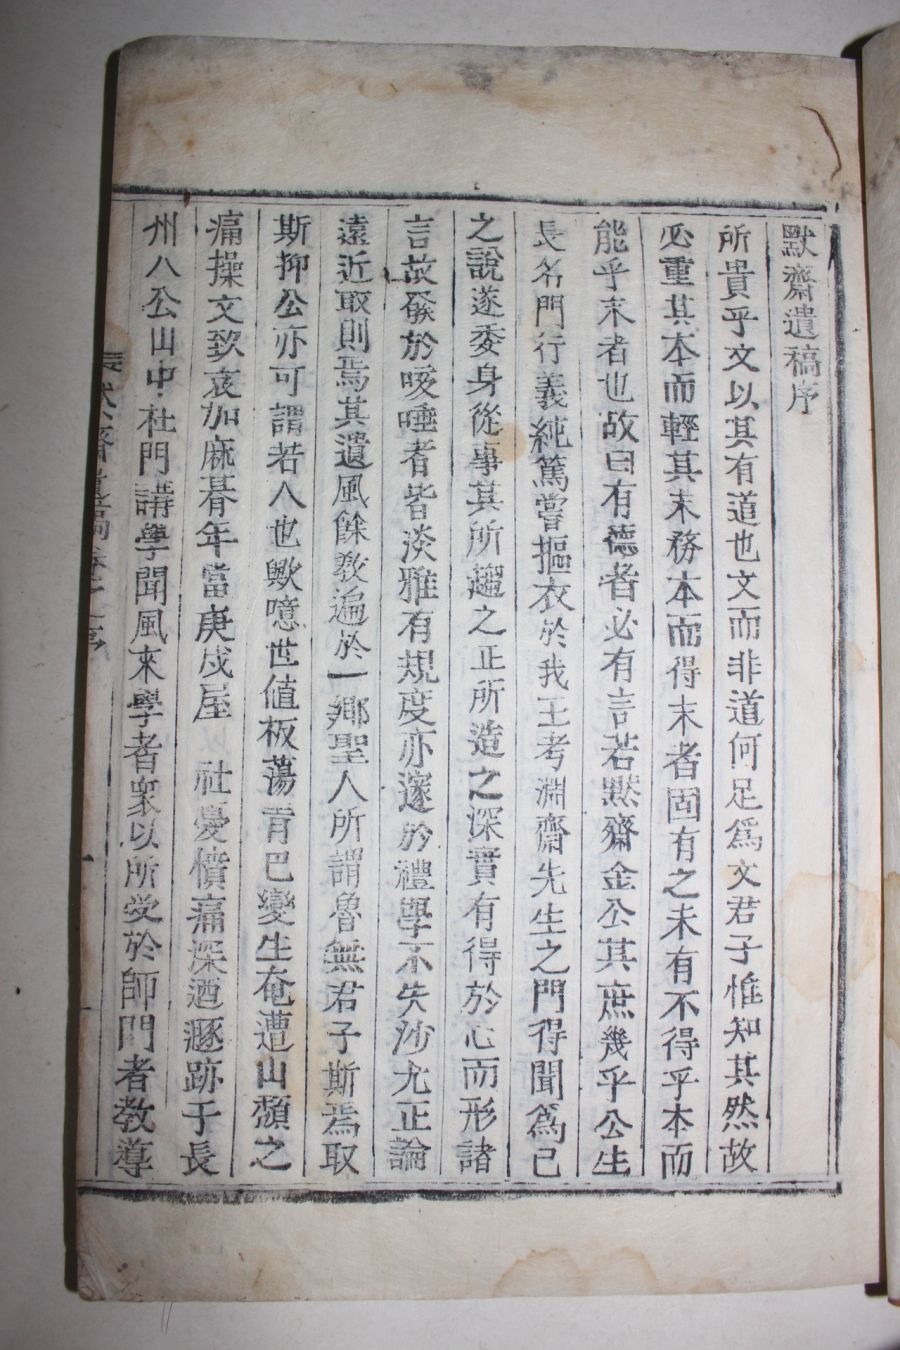 默齋遺稿序
所貴乎文以其有道也文而非道何足爲文君子惟知其然故
必重其本而輕其末務本而得末者固有之未有不得乎本而
能乎末者也故曰有德者必有言若默齋金公其庶幾乎公生
長名門行義純篤嘗摳衣於我王考淵齋先生之門得聞爲己
之說遂委身從事其所趨之正所造之深實有得於心而形諸
言故發於咳唾者皆淡雅有規度亦邃於禮學不失沙尤正論
遠近取則焉其遺風餘敎遍於一鄕聖人所謂魯無君子斯焉取
斯抑公亦可謂若人也歟噫世値板蕩靑巴變生奄遭山頹之
痛操文致哀加麻朞年當庚戌屋 社憂憤痛深遁遯跡于長
州八公山中杜門講學聞風來學者衆以所受於師門者敎導
默齋遺稿卷之一 序